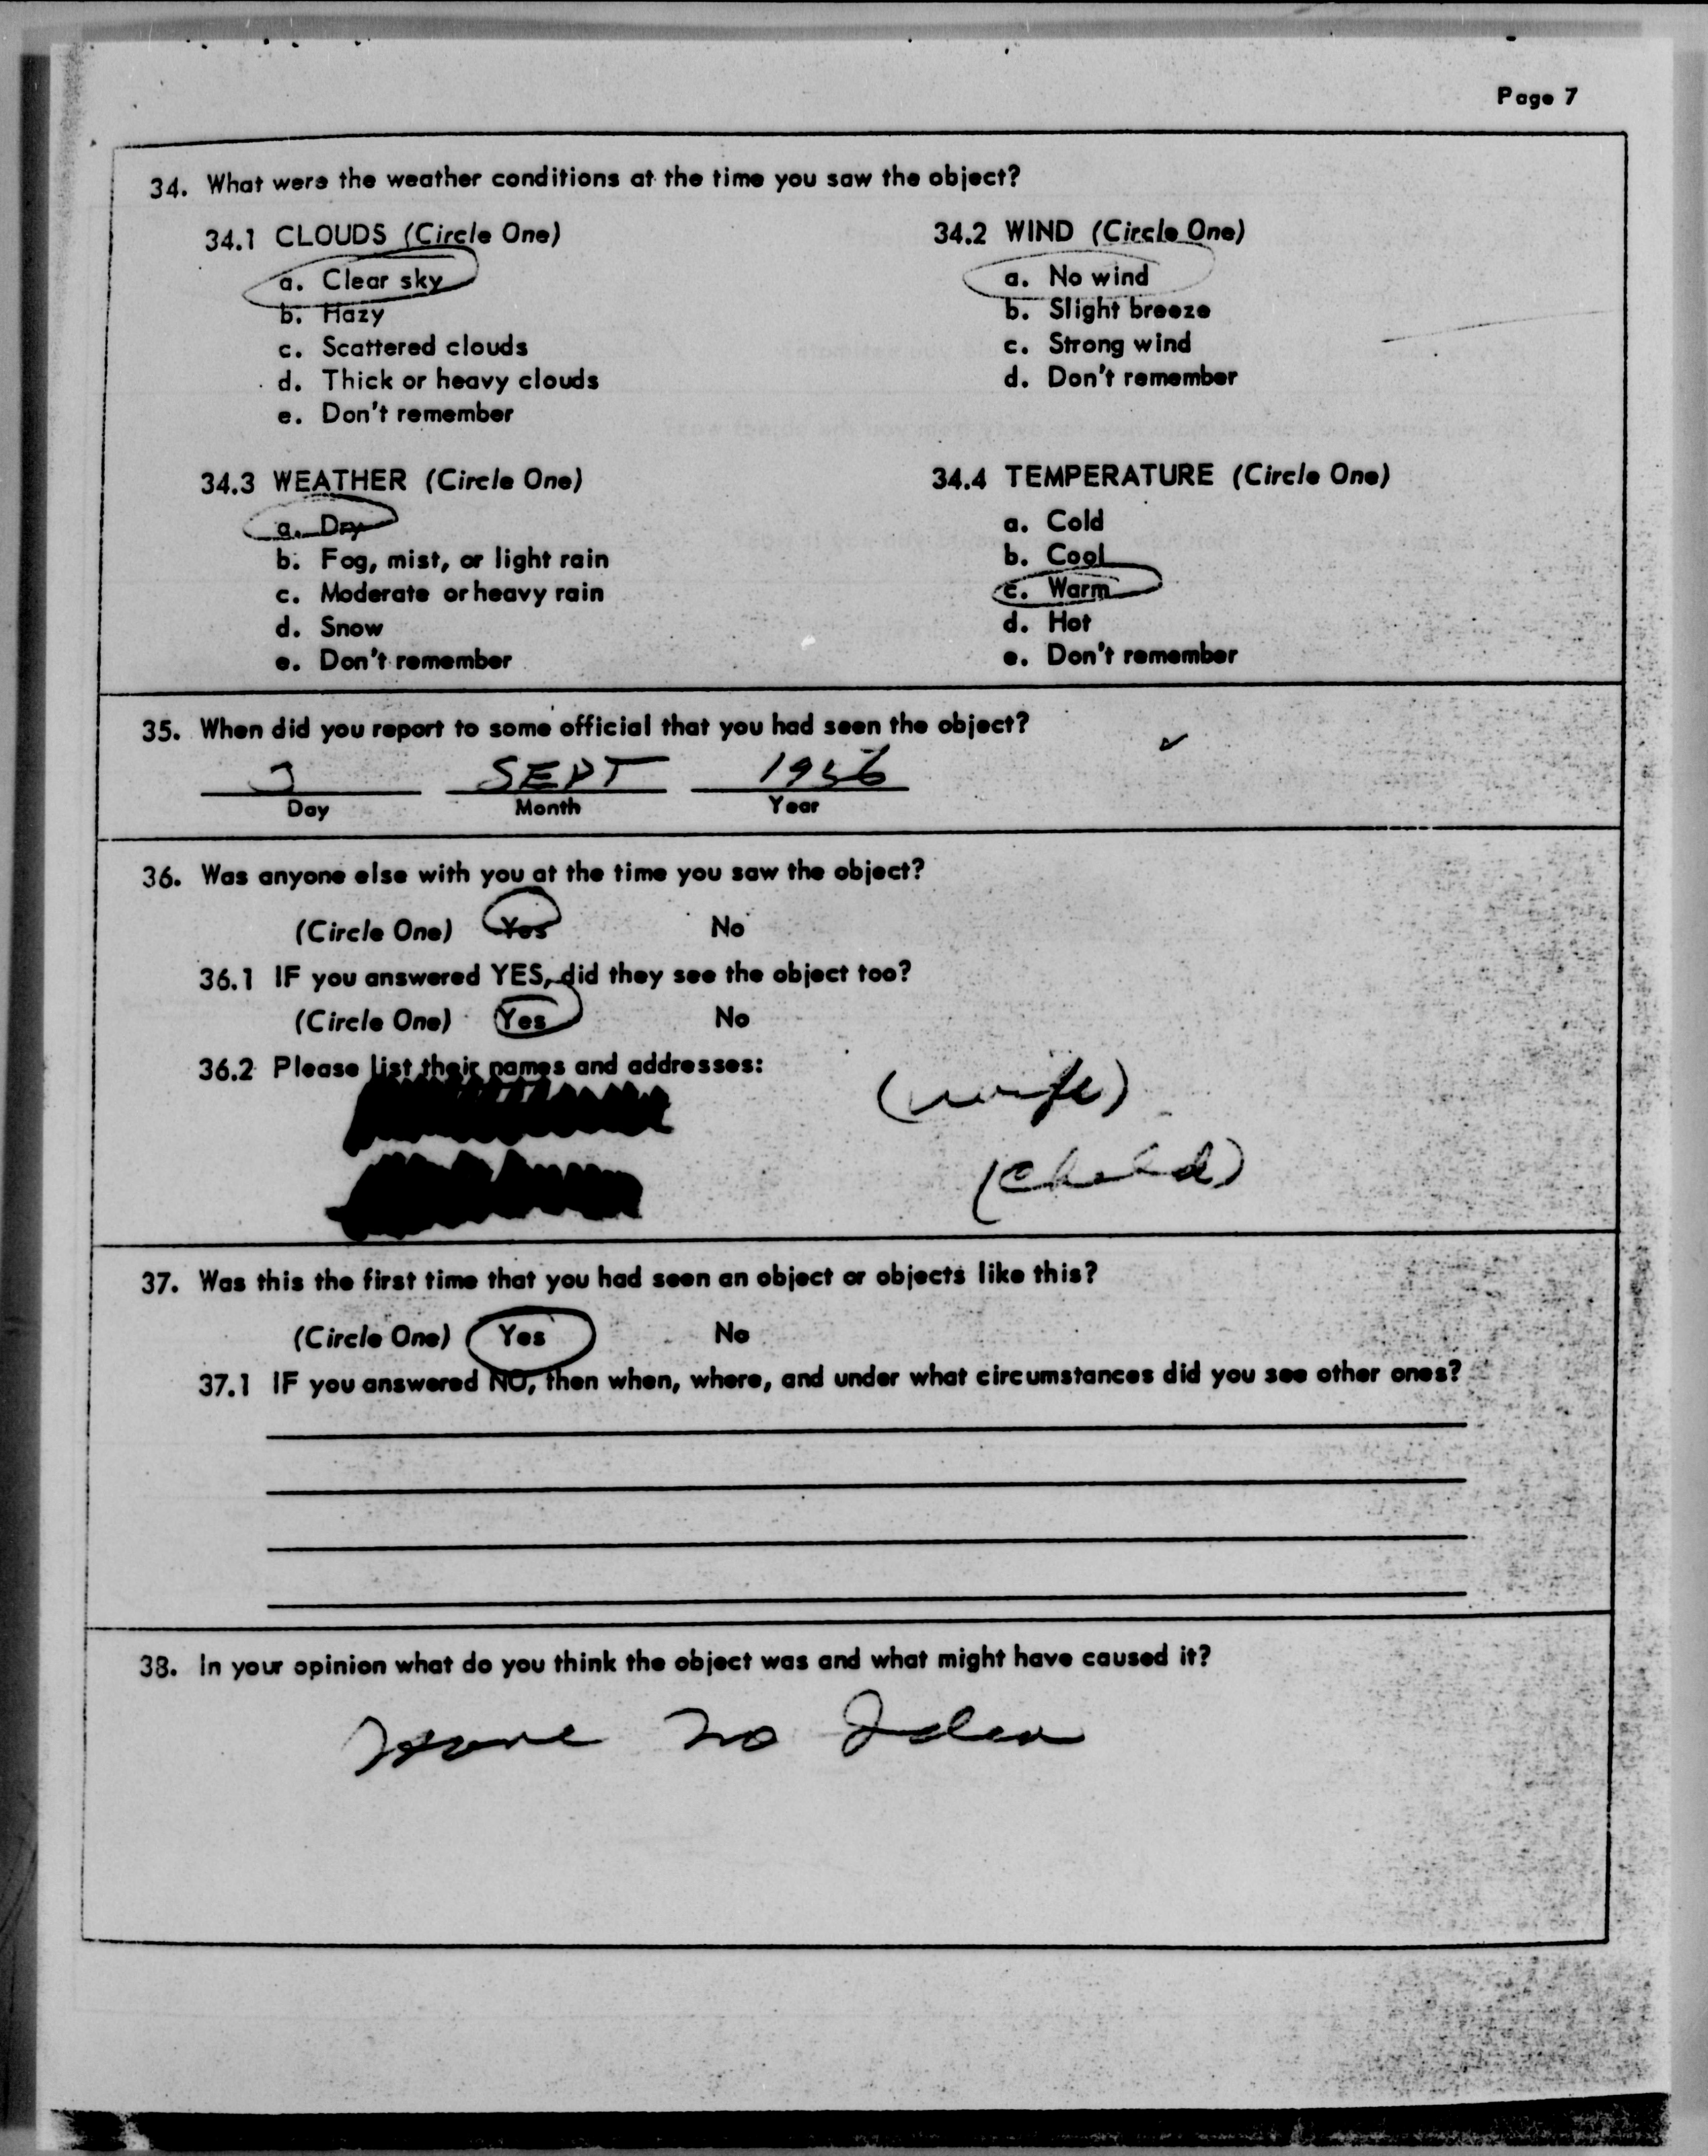 Page 7
34. What were the weather conditions at the time you saw the object?
34.1 CLOUDS (Circle One)
a. Clear sky
b. Hazy
c. Scattered clouds
d. Thick or heavy clouds
e. Don't remember
34.2 WIND (Circle One)
a. No wind
b. Slight breeze
c. Strong wind
d. Don't remember
34.3 WEATHER (Circle One)
a. Dry
b. Fog, mist, or light rain
c. Moderate or heavy rain
d. Snow
e. Don't remember
34.4 TEMPERATURE (Circle One)
a. Cold
b. Cool
c. Warm
d. Hot
e. Don't remember
35. When did you report to some official that you had seen the object?
SEPT 1956
Day Month Year
36. Was anyone else with you at the time you saw the object?
(Circle One) Yes No
36.1 IF you answered YES, did they see the object too?
(Circle One) Yes No
36.2 Please list their names and addresses:
(wife)
(child)
37. Was this the first time that you had seen an object or objects like this?
(Circle One) Yes No
37.1 IF you answered NO, then when, where, and under what circumstances did you see other ones?
38. In your opinion what do you think the object was and what might have caused it?
Have no Idea